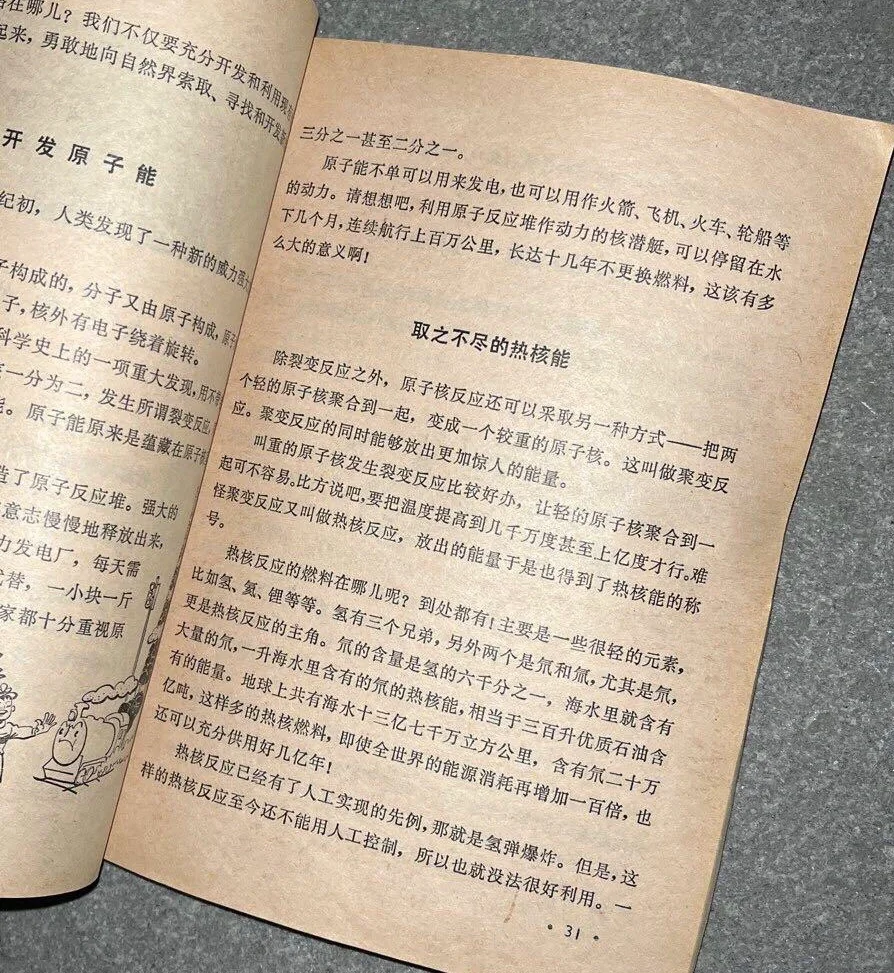 在哪儿？我们不仅要充分开发和利用现
起来，勇敢地向自然界索取、寻找和开发
开发原子能
纪初，人类发现了一种新的威力强
子构成的，分子又由原子构成，原
子，核外有电子绕着旋转。
科学史上的一项重大发现，用
一分为二，发生所谓裂变反应
能。原子能原来是蕴藏在原子
造了原子反应堆。强大的
意志慢慢地释放出来，
力发电厂，每天需
代替，一小块一斤
家都十分重视原
三分之一甚至二分之一。
原子能不单可以用来发电，也可以用作火箭、飞机、火车、轮船等
的动力。请想想吧，利用原子反应堆作动力的核潜艇，可以停留在水
下几个月，连续航行上百万公里，长达十几年不更换燃料，这该有多
么大的意义啊！
取之不尽的热核能
除裂变反应之外，原子核反应还可以采取另一种方式——把两
个轻的原子核聚合到一起，变成一个较重的原子核。这叫做聚变反
应。聚变反应的同时能够放出更加惊人的能量。
叫重的原子核发生裂变反应比较好办，让轻的原子核聚合到一
起可不容易。比方说吧，要把温度提高到几千万度甚至上亿度才行。难
怪聚变反应又叫做热核反应，放出的能量于是也得到了热核能的称
号。
热核反应的燃料在哪儿呢？到处都有！主要是一些很轻的元素，
比如氢、氦、锂等等。氢有三个兄弟，另外两个是氘和氚，尤其是氘，
更是热核反应的主角。氘的含量是氢的六千分之一，海水里就含有
大量的氘，一升海水里含有的氘的热核能，相当于三百升优质石油含
有的能量。地球上共有海水十三亿七千万立方公里，含有氘二十万
亿吨，这样多的热核燃料，即使全世界的能源消耗再增加一百倍，也
还可以充分供用好几亿年！
热核反应已经有了人工实现的先例，那就是氢弹爆炸。但是，这
样的热核反应至今还不能用人工控制，所以也就没法很好利用。一
·31·